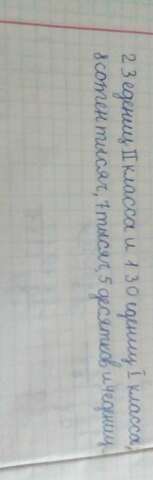 23 едениц II класса и 130 едениц I класса,
8 сотен тысяч, 7 тысяч, 5 десятков и 4 едениц